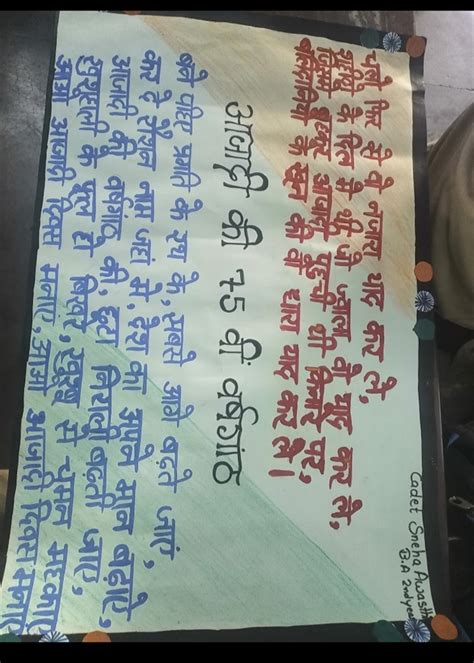 Cadet Sneha Awasthi
B.A 2nd year
चलो फिर से वो नजारा याद कर ले,
शहीदों के दिल में थी जो ज्वाला वो याद कर ले,
जिसमे बहकर आजादी पहुची थी किनारे पर,
बलिदानियो के खून की वो धारा याद कर ले।
आजादी की 75 वीं वर्षगांठ
बनो पहिए प्रगति के रथ के, सबसे आगे बढ़ते जाएं,
कर दे रोशन नाम जहां मे, देश का अपने मान बढ़ाएं,
आजादी की वर्षगांठ की, छटा निराली बढ़ती जाए,
खुशहाली के फूल हो बिखरे, खुशबू से चमन महकाए
आओ आजादी दिवस मनाए, आओ आजादी दिवस मनाए